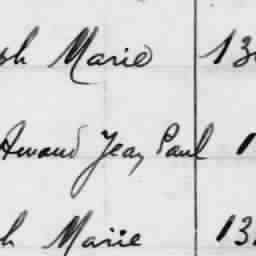 ph Marie 13
Armand Jean Paul 1
h Marie 13